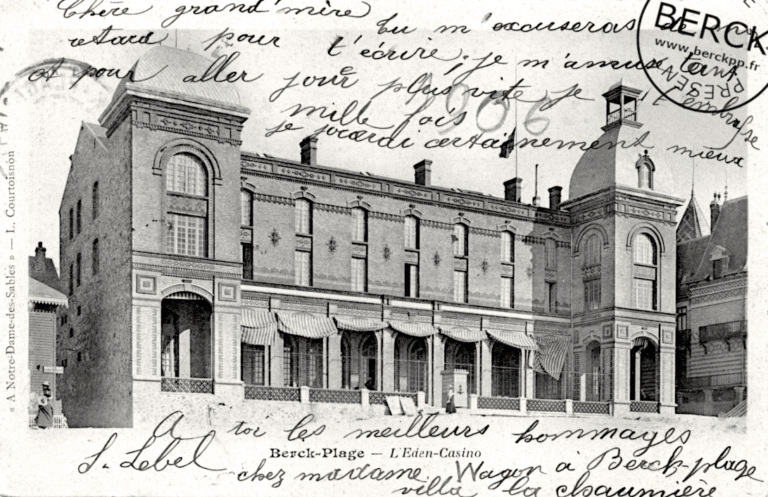 Chère grand'mère
tu m'excuseras de mon
retard pour t'écrire, je m'amuse tant
et pour aller jouer plus vite je t'embrasse
mille fois
je jouerai certainement mieux
1906
BERCK
www.berckpp.fr
PRESEN
« A Notre-Dame-des-Sables » — L. Courtoisnon
A toi les meilleurs hommages
Berck-Plage — L'Eden-Casino
S. Lebel
chez madame Wagon à Berck-plage
villa la chaumière